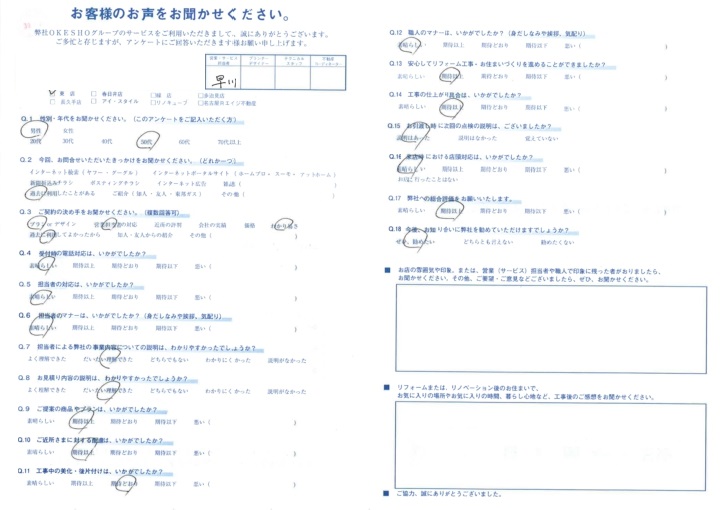 お客様のお声をお聞かせください。
弊社OKESHOグループのサービスをご利用いただきまして、誠にありがとうございます。
ご多忙と存じますが、アンケートにご回答いただきます様お願い申し上げます。
営業・サービス担当者 プランナーデザイナー テクニカルスタッフ 不動産
早川
東店 春日井店 緑店
長久手店 アイ・スタイル リノキューブ 名古屋西エイン不動産
Q.1 性別・年代をお聞かせください。(このアンケートをご記入いただく方)
男性 女性
20代 30代 40代 50代 60代 70代以上
Q.2 今回、お問合せいただいたきっかけをお聞かせください。(どれか一つ)
インターネット検索(ヤフー・グーグル) インターネットポータルサイト(ホームプロ・スーモ・アットホーム)
新聞折込みチラシ ポスティングチラシ インターネット広告 雑誌( )
過去に利用したことがある ご紹介(知人・友人・東邦ガス) その他( )
Q.3 ご契約の決め手をお聞かせください。(複数回答可)
プラン or デザイン 営業担当者の対応 近所の評判 会社の実績 価格 わかり易さ
過去に利用してよかったから 知人・友人からの紹介 その他( )
Q.4 受付時の電話対応は、いかがでしたか?
素晴らしい 期待以上 期待どおり 期待以下 悪い( )
Q.5 担当者の対応は、いかがでしたか?
素晴らしい 期待以上 期待どおり 期待以下 悪い( )
Q.6 担当者のマナーは、いかがでしたか?(身だしなみや挨拶、気配り)
素晴らしい 期待以上 期待どおり 期待以下 悪い( )
Q.7 担当者による弊社の事業内容についての説明は、わかりやすかったでしょうか?
よく理解できた だいたい理解できた どちらでもない わかりにくかった 説明がなかった
Q.8 お見積り内容の説明は、わかりやすかったでしょうか?
よく理解できた だいたい理解できた どちらでもない わかりにくかった 説明がなかった
Q.9 ご提案の商品やプランは、いかがでしたか?
素晴らしい 期待以上 期待どおり 期待以下 悪い( )
Q.10 ご近所さまに対する配慮は、いかがでしたか?
素晴らしい 期待以上 期待どおり 期待以下 悪い( )
Q.11 工事中の美化・後片付けは、いかがでしたか?
素晴らしい 期待以上 期待どおり 期待以下 悪い( )
Q.12 職人のマナーは、いかがでしたか?(身だしなみや挨拶、気配り)
素晴らしい 期待以上 期待どおり 期待以下 悪い( )
Q.13 安心してリフォーム工事・お住まいづくりを進めることができましたか?
素晴らしい 期待以上 期待どおり 期待以下 悪い( )
Q.14 工事の仕上がり具合は、いかがでしたか?
素晴らしい 期待以上 期待どおり 期待以下 悪い( )
Q.15 お引渡し時に定期の点検の説明は、ございましたか?
説明はあった 説明はなかった 覚えていない
Q.16 来店時における店頭対応は、いかがでしたか?
素晴らしい 期待以上 期待どおり 期待以下 悪い( )
お店に行ったことはない
Q.17 弊社への総合評価をお願いいたします。
素晴らしい 期待以上 期待どおり 期待以下 悪い( )
Q.18 今後、お知り合いに弊社を勧めていただけますでしょうか?
ぜひ、勧めたい どちらとも言えない 勧めたくない
■ お店の雰囲気や印象、または、営業(サービス)担当者や職人で印象に残った者がおりましたら、
お聞かせください。その他、ご要望・ご意見などございましたら、ぜひ、お聞かせください。
■ リフォームまたは、リノベーション後のお住まいで、
お気に入りの場所やお気に入りの時間、暮らし心地など、工事後のご感想をお聞かせください。
■ ご協力、誠にありがとうございました。